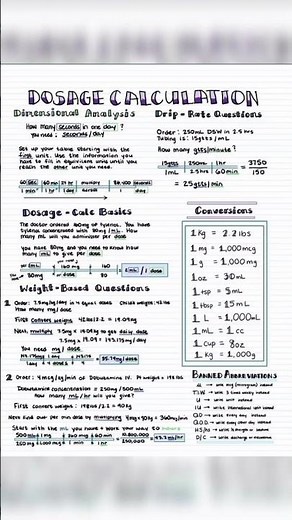 DOSAGE CALCULATION
Dimensional Analysis
How many seconds in one day?
you need: seconds/day
Set up your table starting with the
first unit. Use the information you have
to fill in equivalent units until you
reach the other unit you need.
60 sec | 60 min | 24 hr
1 min | 1 hr | 1 day
Drip-Rate Questions
Order: 250mL D5W in 2.5 hrs
Tubing is: 15gtts/mL
How many gtts/minute?
15gtts | 250mL | 1hr = 3750
1mL | 2.5hrs | 60min 150
= 25gtts/min
Dosage-Calc Basics
The doctor ordered 160mg of tylenol. You have
tylenol concentrated with 80mg/mL. How
many mL will you administer per dose
You have 80mg and you need to know how
many mL to give per dose.
mL | 160 mg
80mg | dose
Weight-Based Questions
1 Order: 7.5mg/kg/day in 4 equal doses. Child weighs: 42 lbs
How many mg/dose?
First convert weight 42lbs/2.2 = 19.09kg
Next multiply 7.5mg x 19.09kg to get daily dose
7.5mg x 19.09 = 143.175mg/day
You need mg/dose
35.79mg/dose
2 Order: 4mcg/kg/min of Dobutamine IV. Pt weighs: 198lbs
Dobutamine concentration = 250mg/500mL
How many mL/hr will you give?
First convert weight: 198lbs/2.2 = 90kg
Next find our per min dose by multiplying 4mcg x 90kg = 360mcg/min
Start with the mL you have & work your way to
500mL | 1 mg | 360 mcg | 60 min = 10,800,000
250 mg | 1,000mcg | 1 min | 1 hr 250,000
43.2 mL/hr
Conversions
1 Kg = 2.2 lbs
1 mg = 1,000mcg
1 g = 1,000mg
1 oz = 30mL
1 tsp = 5mL
1 tbsp = 15mL
1 L = 1,000mL
1 mL = 1 cc
1 cup = 8oz
1 Kg = 1,000g
Banned Abbreviations
TIW → Write 3 times weekly instead
U → Write unit instead
IU → Write international unit instead
QD → Write every day instead
QOD → Write every other day instead
D/C → Write discharge or discontinue